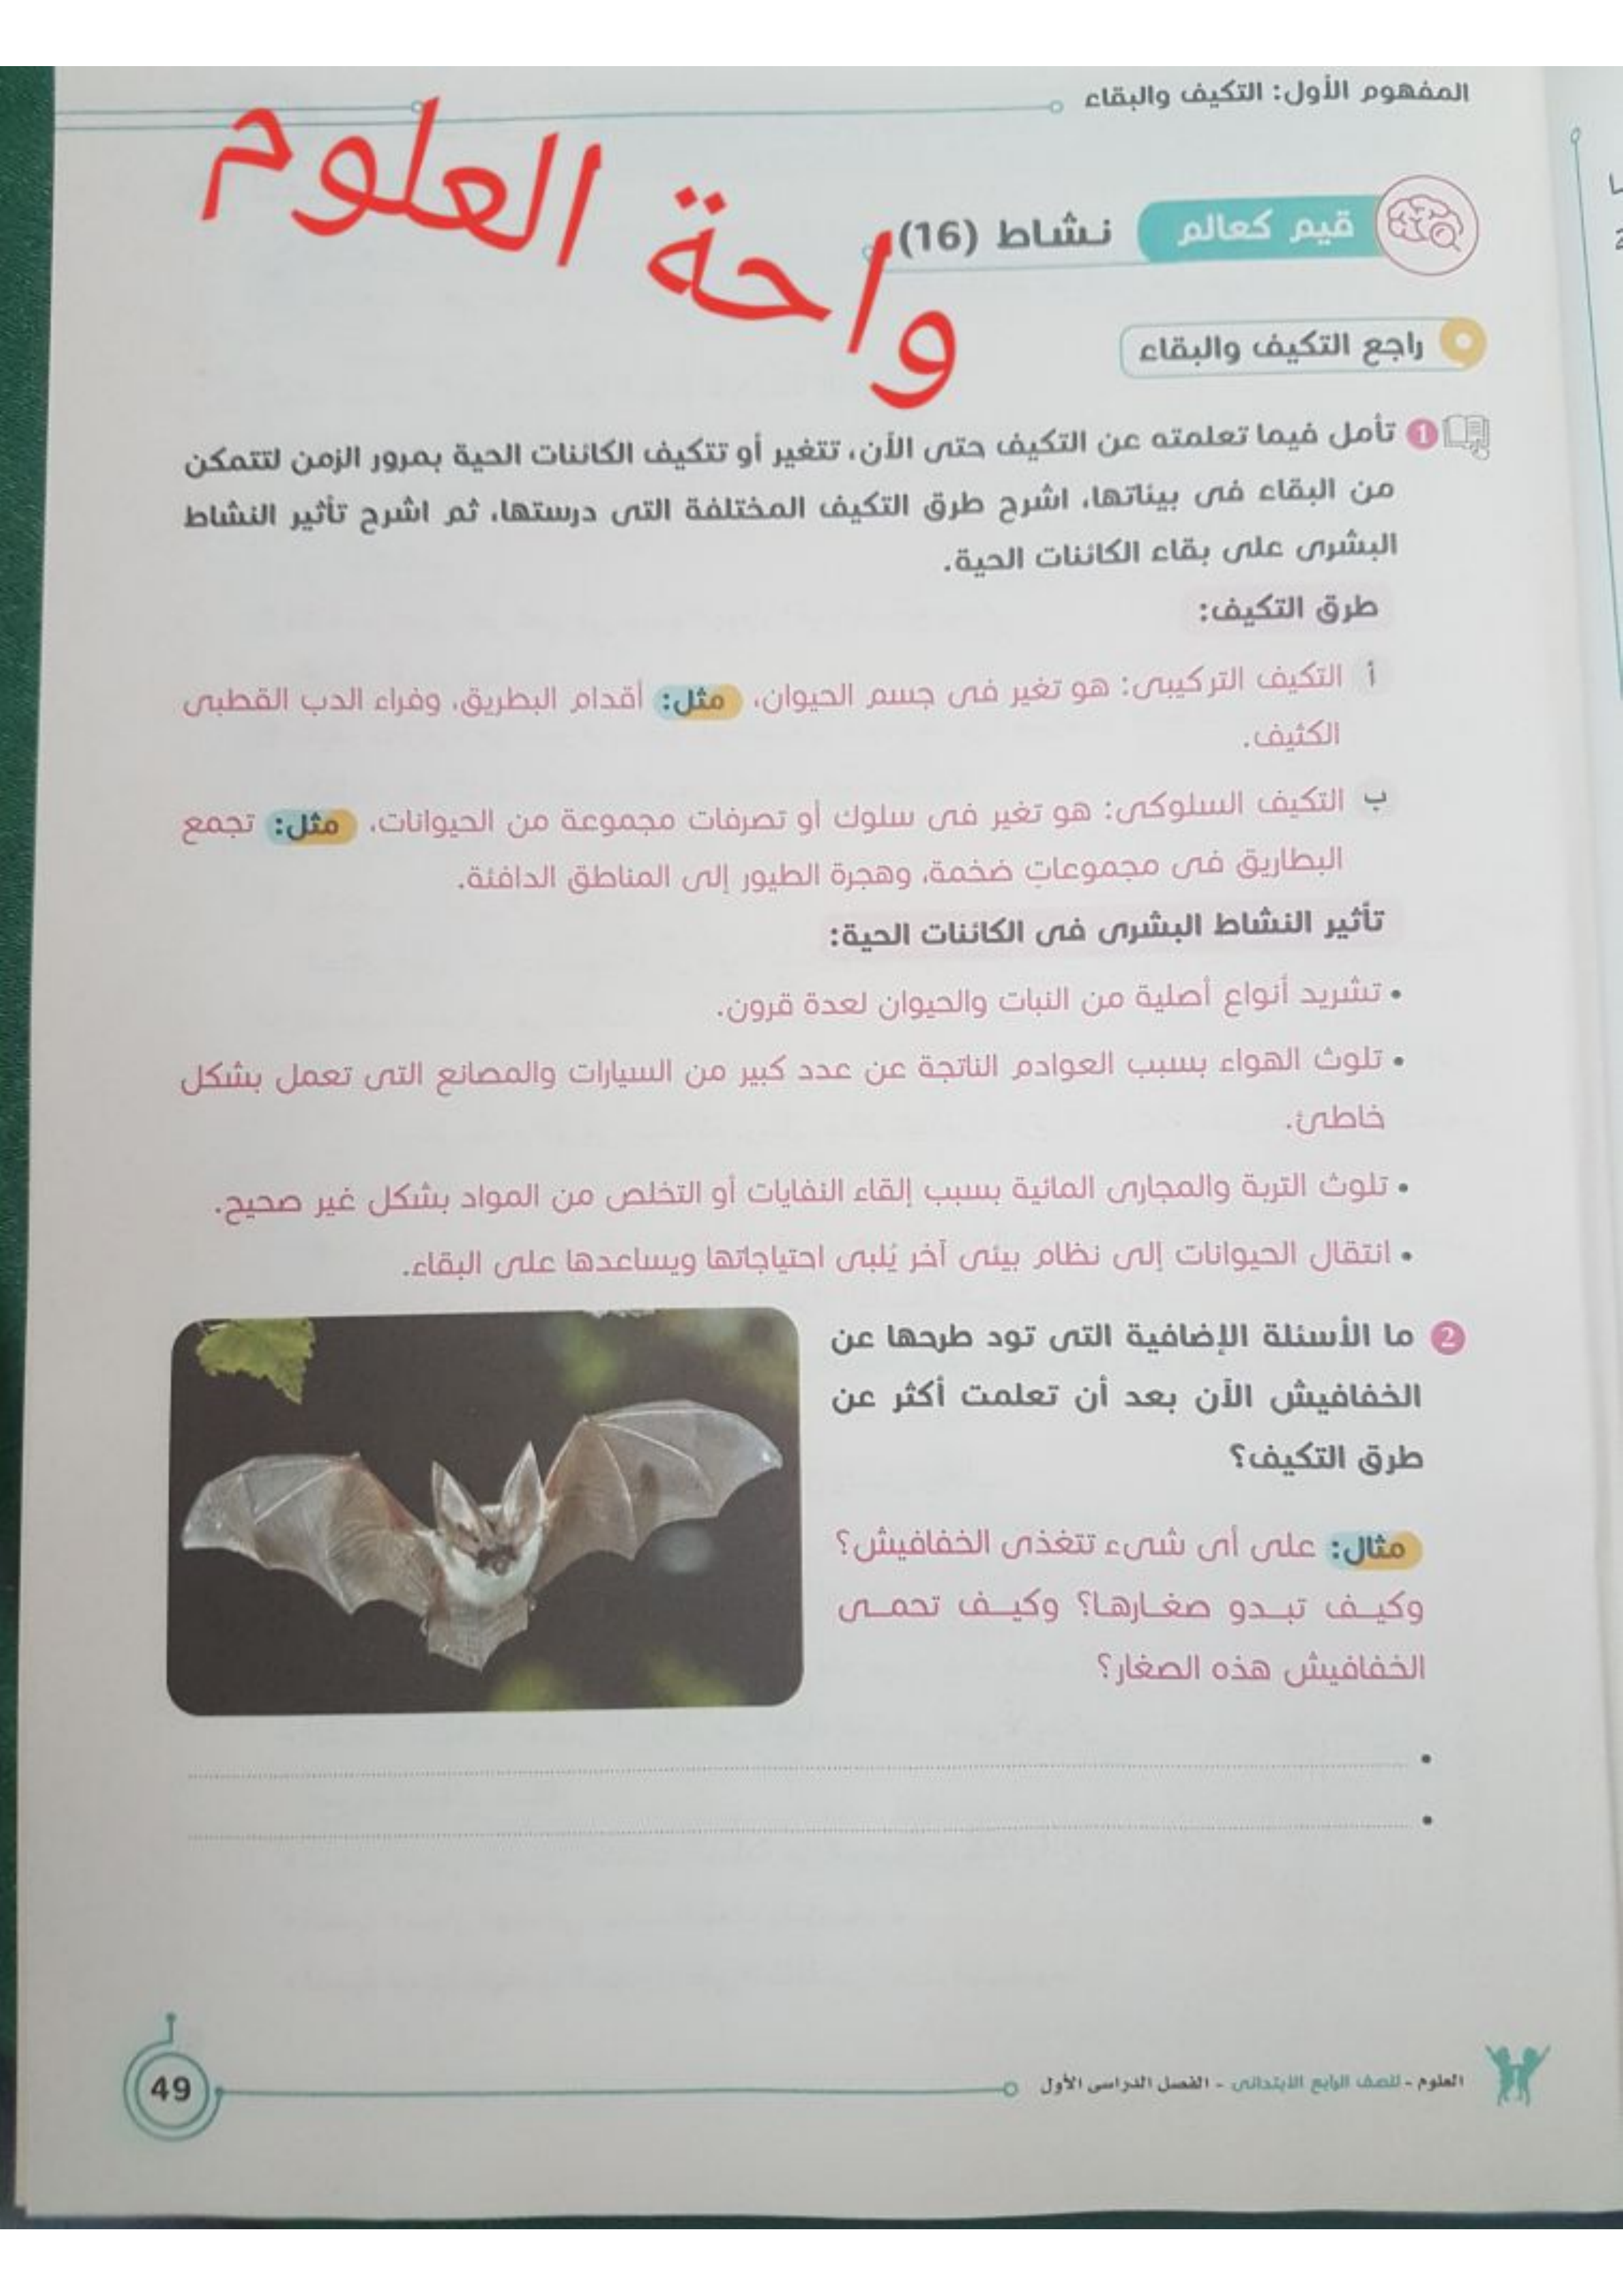 المفهوم الأول: التكيف والبقاء
واحة العلوم
قيم كعالم نشاط (16)
راجع التكيف والبقاء
1 تأمل فيما تعلمته عن التكيف حتى الآن، تتغير أو تتكيف الكائنات الحية بمرور الزمن لتتمكن
من البقاء فى بيئاتها، اشرح طرق التكيف المختلفة التى درستها، ثم اشرح تأثير النشاط
البشرى على بقاء الكائنات الحية.
طرق التكيف:
أ التكيف التركيبى: هو تغير فى جسم الحيوان، مثل: أقدام البطريق، وفراء الدب القطبى
الكثيف.
ب التكيف السلوكى: هو تغير فى سلوك أو تصرفات مجموعة من الحيوانات، مثل: تجمع
البطاريق فى مجموعات ضخمة، وهجرة الطيور إلى المناطق الدافئة.
تأثير النشاط البشرى فى الكائنات الحية:
• تشريد أنواع أصلية من النبات والحيوان لعدة قرون.
• تلوث الهواء بسبب العوادم الناتجة عن عدد كبير من السيارات والمصانع التى تعمل بشكل
خاطئ.
• تلوث التربة والمجارى المائية بسبب إلقاء النفايات أو التخلص من المواد بشكل غير صحيح.
• انتقال الحيوانات إلى نظام بيئى آخر يُلبى احتياجاتها ويساعدها على البقاء.
2 ما الأسئلة الإضافية التى تود طرحها عن
الخفافيش الآن بعد أن تعلمت أكثر عن
طرق التكيف؟
مثال: على أى شىء تتغذى الخفافيش؟
وكيـف تبـدو صغـارهـا؟ وكيـف تحمـى
الخفافيش هذه الصغار؟
العلوم - للصف الرابع الابتدائى - الفصل الدراسى الأول
49